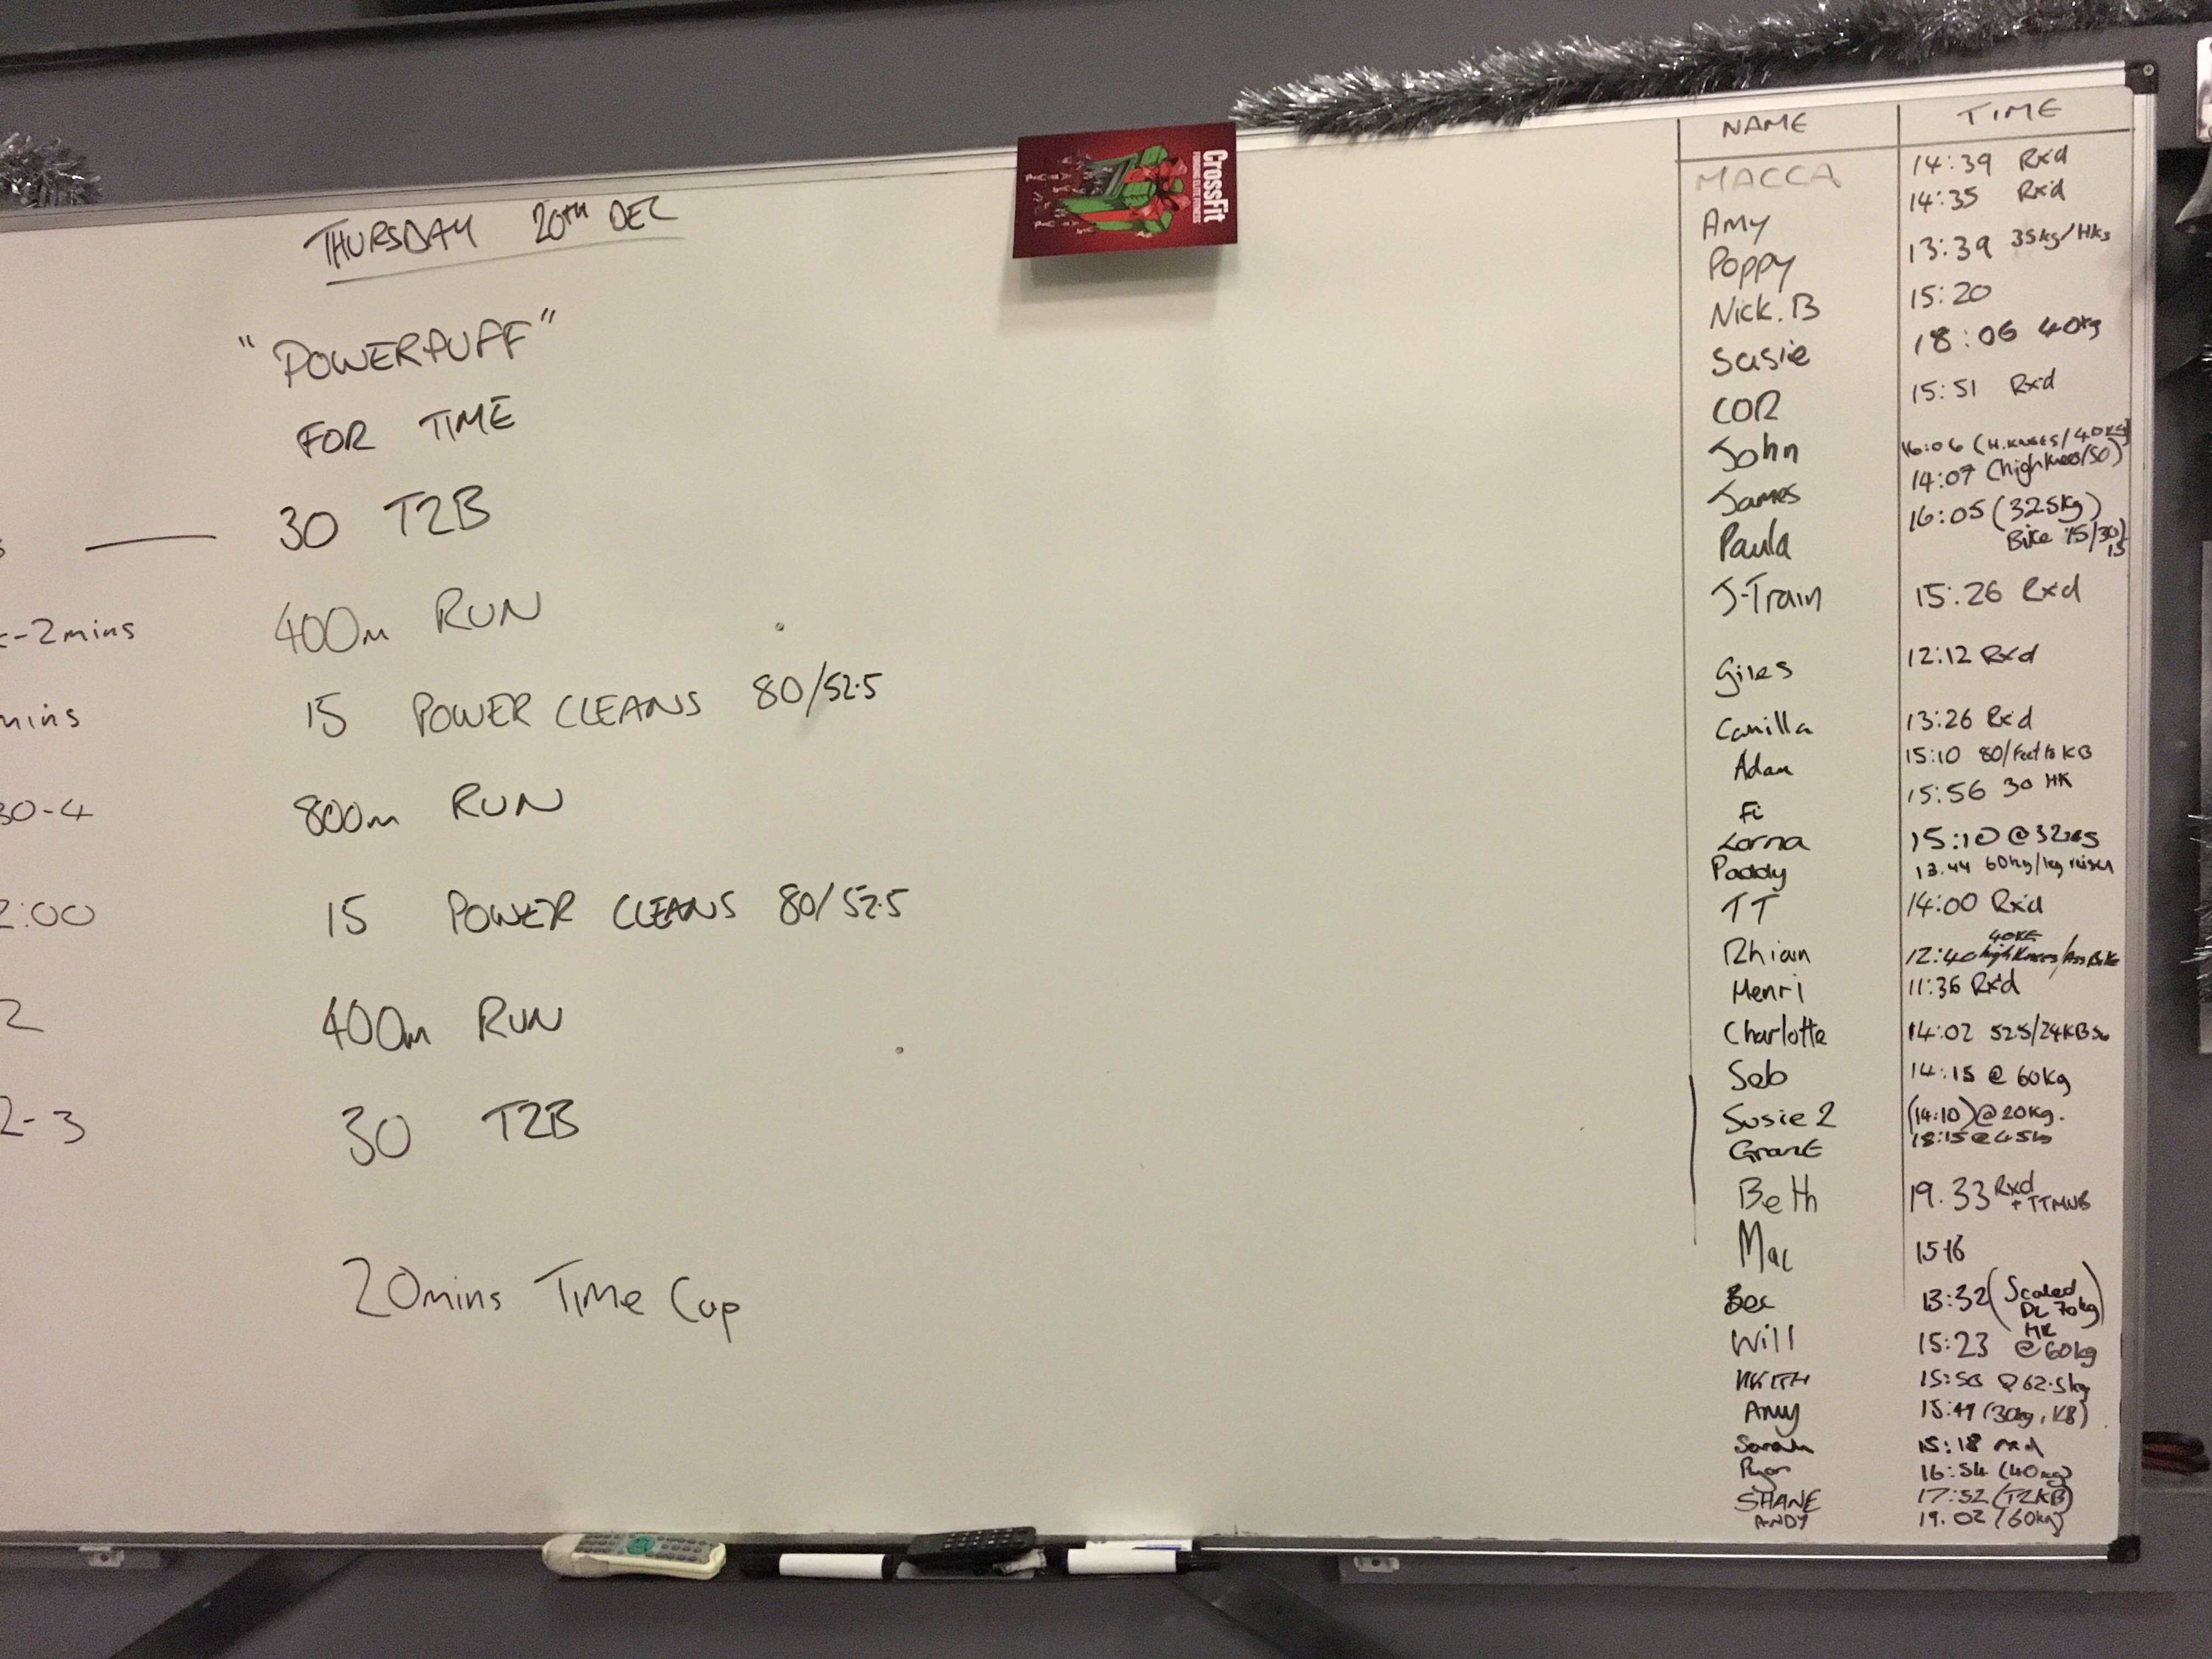 THURSDAY 20TH DEC
"POWERPUFF"
FOR TIME
30 T2B
400m RUN
15 POWER CLEANS 80/52.5
800m RUN
15 POWER CLEANS 80/52.5
400m RUN
30 T2B
20mins Time Cap
-2mins
mins
30-4
2:00
2
2-3
CrossFit
FORGING ELITE FITNESS
NAME TIME
MACCA 14:39 Rxd
Amy 14:35 Rx'd
Poppy 13:39 35kg/HKs
Nick.B 15:20
Susie 18:06 40kg
COR 15:51 Rx'd
John 16:06 (H.KNEES/40KG)
James 14:07 (high knees/50)
Paula 16:05 (32.5kg)
Bike 15/30/15
J-Train 15:26 Rx'd
Giles 12:12 Rxd
Camilla 13:26 Rx'd
Adam 15:10 80/Feet to KB
Fi 15:56 30 HK
Lorna 15:10 @
Paddy 13.44 60kg/leg raises
TT 14:00 Rx'd
Rhian 12:40 40KG high Knees/Ass Bike
Henri 11:36 Rx'd
Charlotte 14:02 52.5/24KB
Seb 14:15 @ 60kg
Susie 2 (14:10) @ 20kg.
18:15 @ 45kg
Beth 19.33 Rxd
+ TTMUB
Mac 15 16
Bec 13:32 (Scaled
DL 70kg)
HK
Will 15:23 @60kg
@62.5kg
Amy (30kg, KB)
Sarah 15:18 rxd
Ryan 16:54 (40kg)
SHANE 17:52 (T2KB)
ANDY 19.02 (60kg)